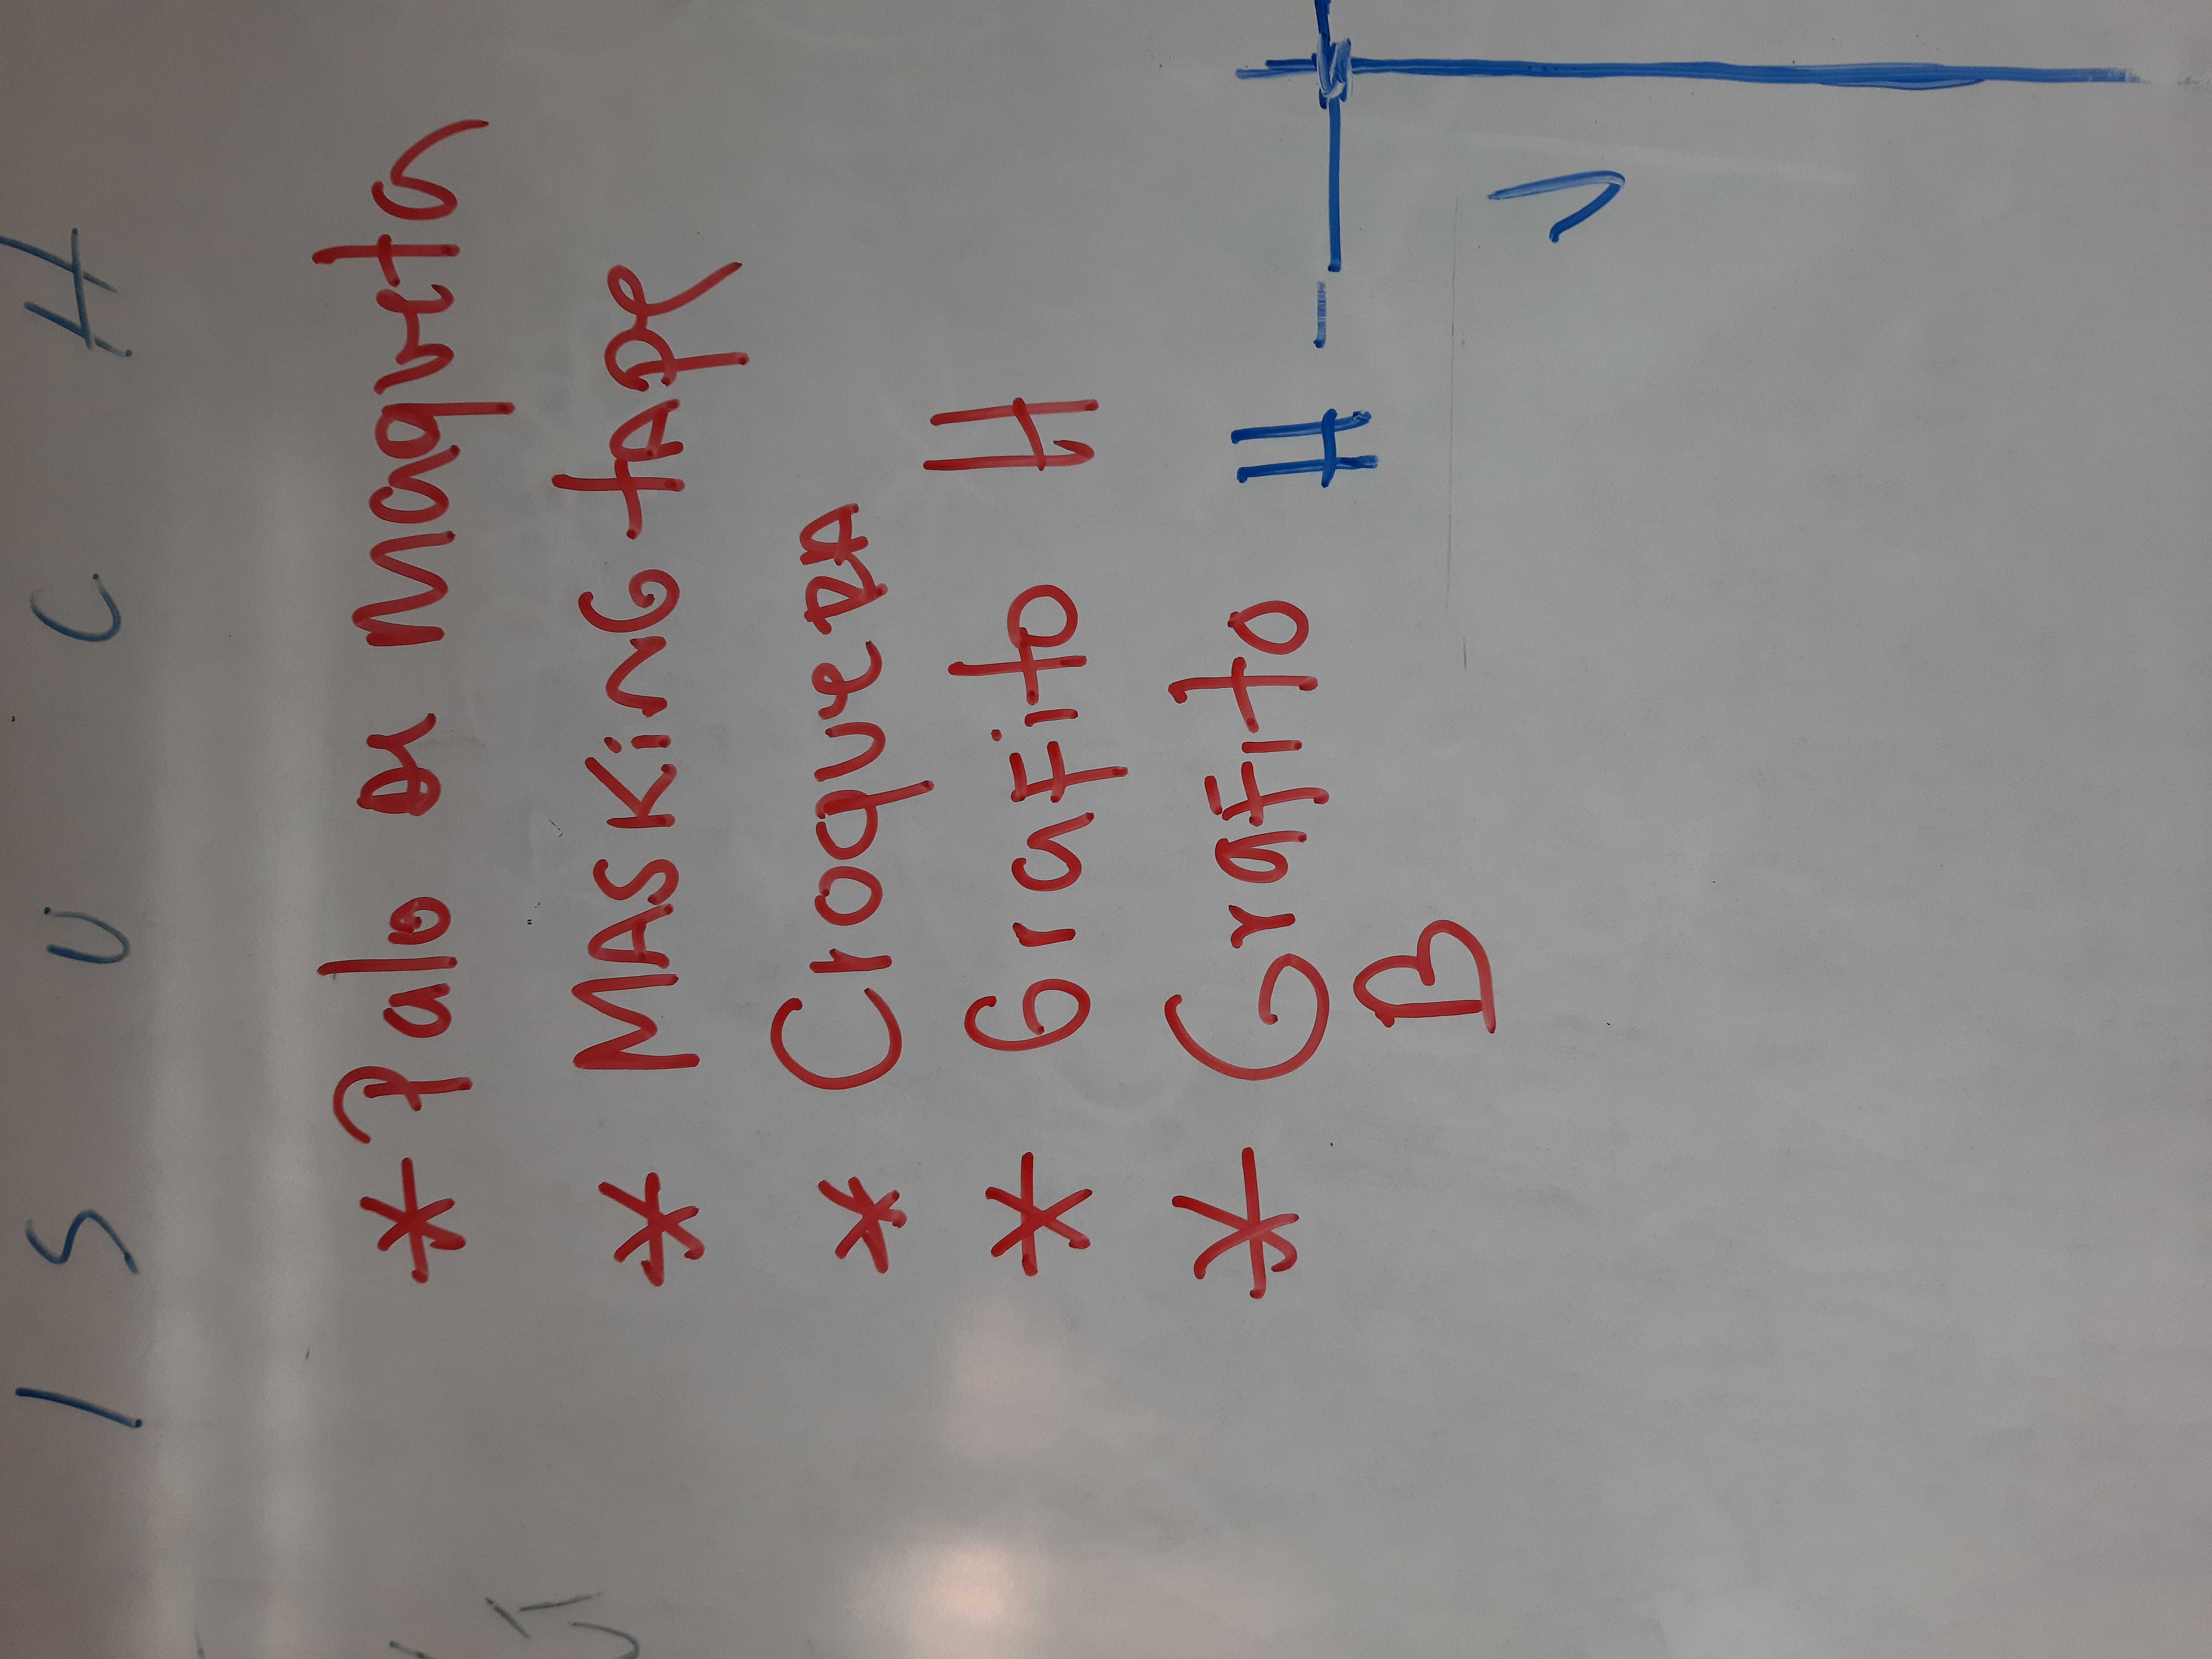 I S U C H
* Palo de maqueta
* MASKiNG tApe
* CroqueRA
* GraFito H
* GraFito H
B